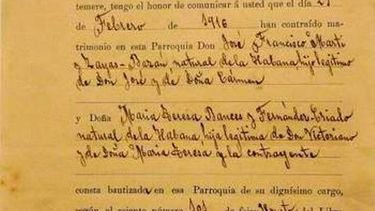 temere, tengo el honor de comunicar á usted que el día 21
de Febrero de 1916 han contraído ma-
trimonio en esa Parroquia Don José Francisco Martí
y Zayas-Bazan natural de la Habana, hijo legítimo
de Don José y de Doña Carmen
y Doña Maria Teresa Bances y Fernández-Criado
natural de la Habana, hija legítima de Don Victoriano
y de Doña Maria Teresa y la contrayente
consta bautizada en esa Parroquia de su dignísimo cargo,
según el asiento número del Libro